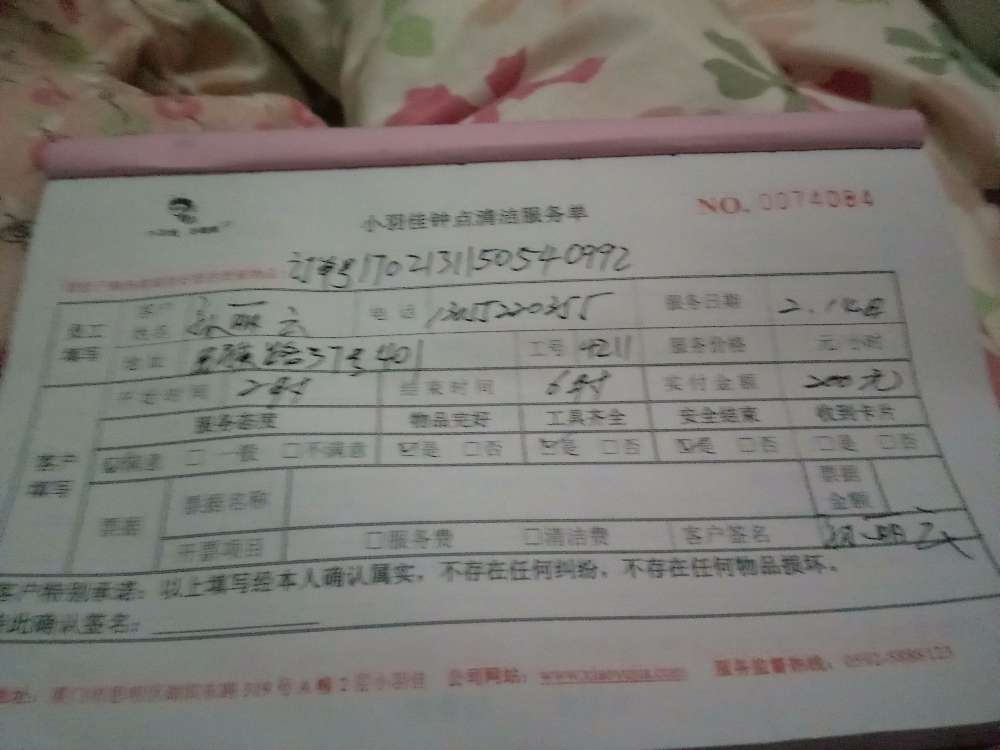 小羽佳钟点清洁服务单
NO. 0074084
订单号170213115054 0992
员工填写 客户姓名 张丽云 电话 服务日期
地址 37号401 工号 4211 服务价格 元/小时
开始时间 2时 结束时间 6时 实付金额 200元
服务态度 物品完好 工具齐全 安全结束 收到卡片
客户填写 ☑满意 □一般 □不满意 ☑是 □否 ☑是 □否 ☑是 □否 □是 □否
票据 票据名称 票据金额
开票项目 □服务费 □清洁费 客户签名 张丽云
客户特别承诺：以上填写经本人确认属实，不存在任何纠纷，不存在任何物品损坏。
特此确认签名：
地址： 309号A幢2层小羽佳 公司网站：www.xiaoyujia.com 服务监督热线：0592-5888123